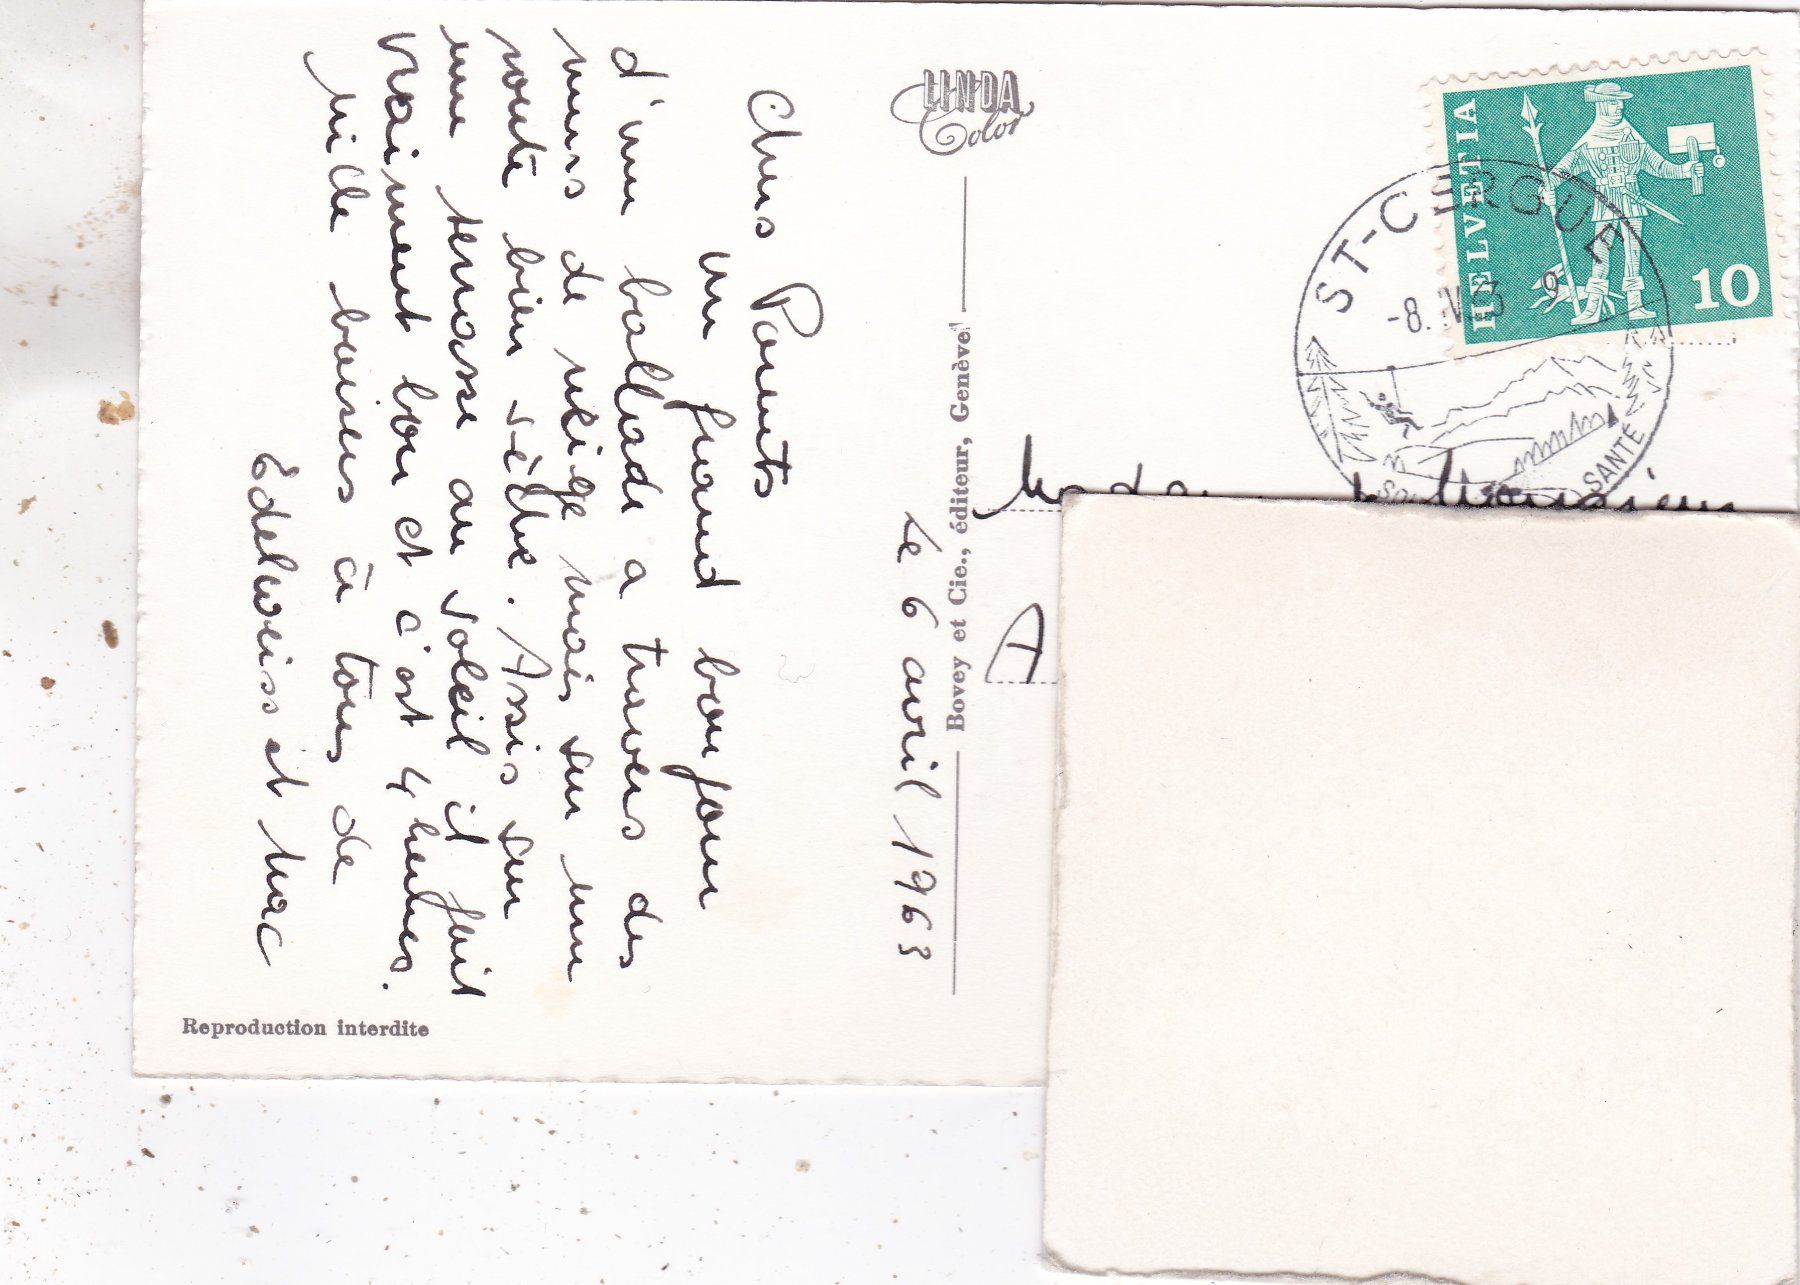 LINDA
Color
HELVETIA
10
ST-CERGUE
-8. IV. 63 9
SANTÉ
Bovey et Cie., éditeur, Genève
le 6 avril 1963
Chers Parents
un grand bonjour
d'une ballade a travers des
murs de neige mais sur une
route bien sèche. Assis sur
une terrasse au soleil il fait
vraiment bon et c'est 4 heures.
Mille baisers à tous de
Edelweiss et Mac
Reproduction interdite